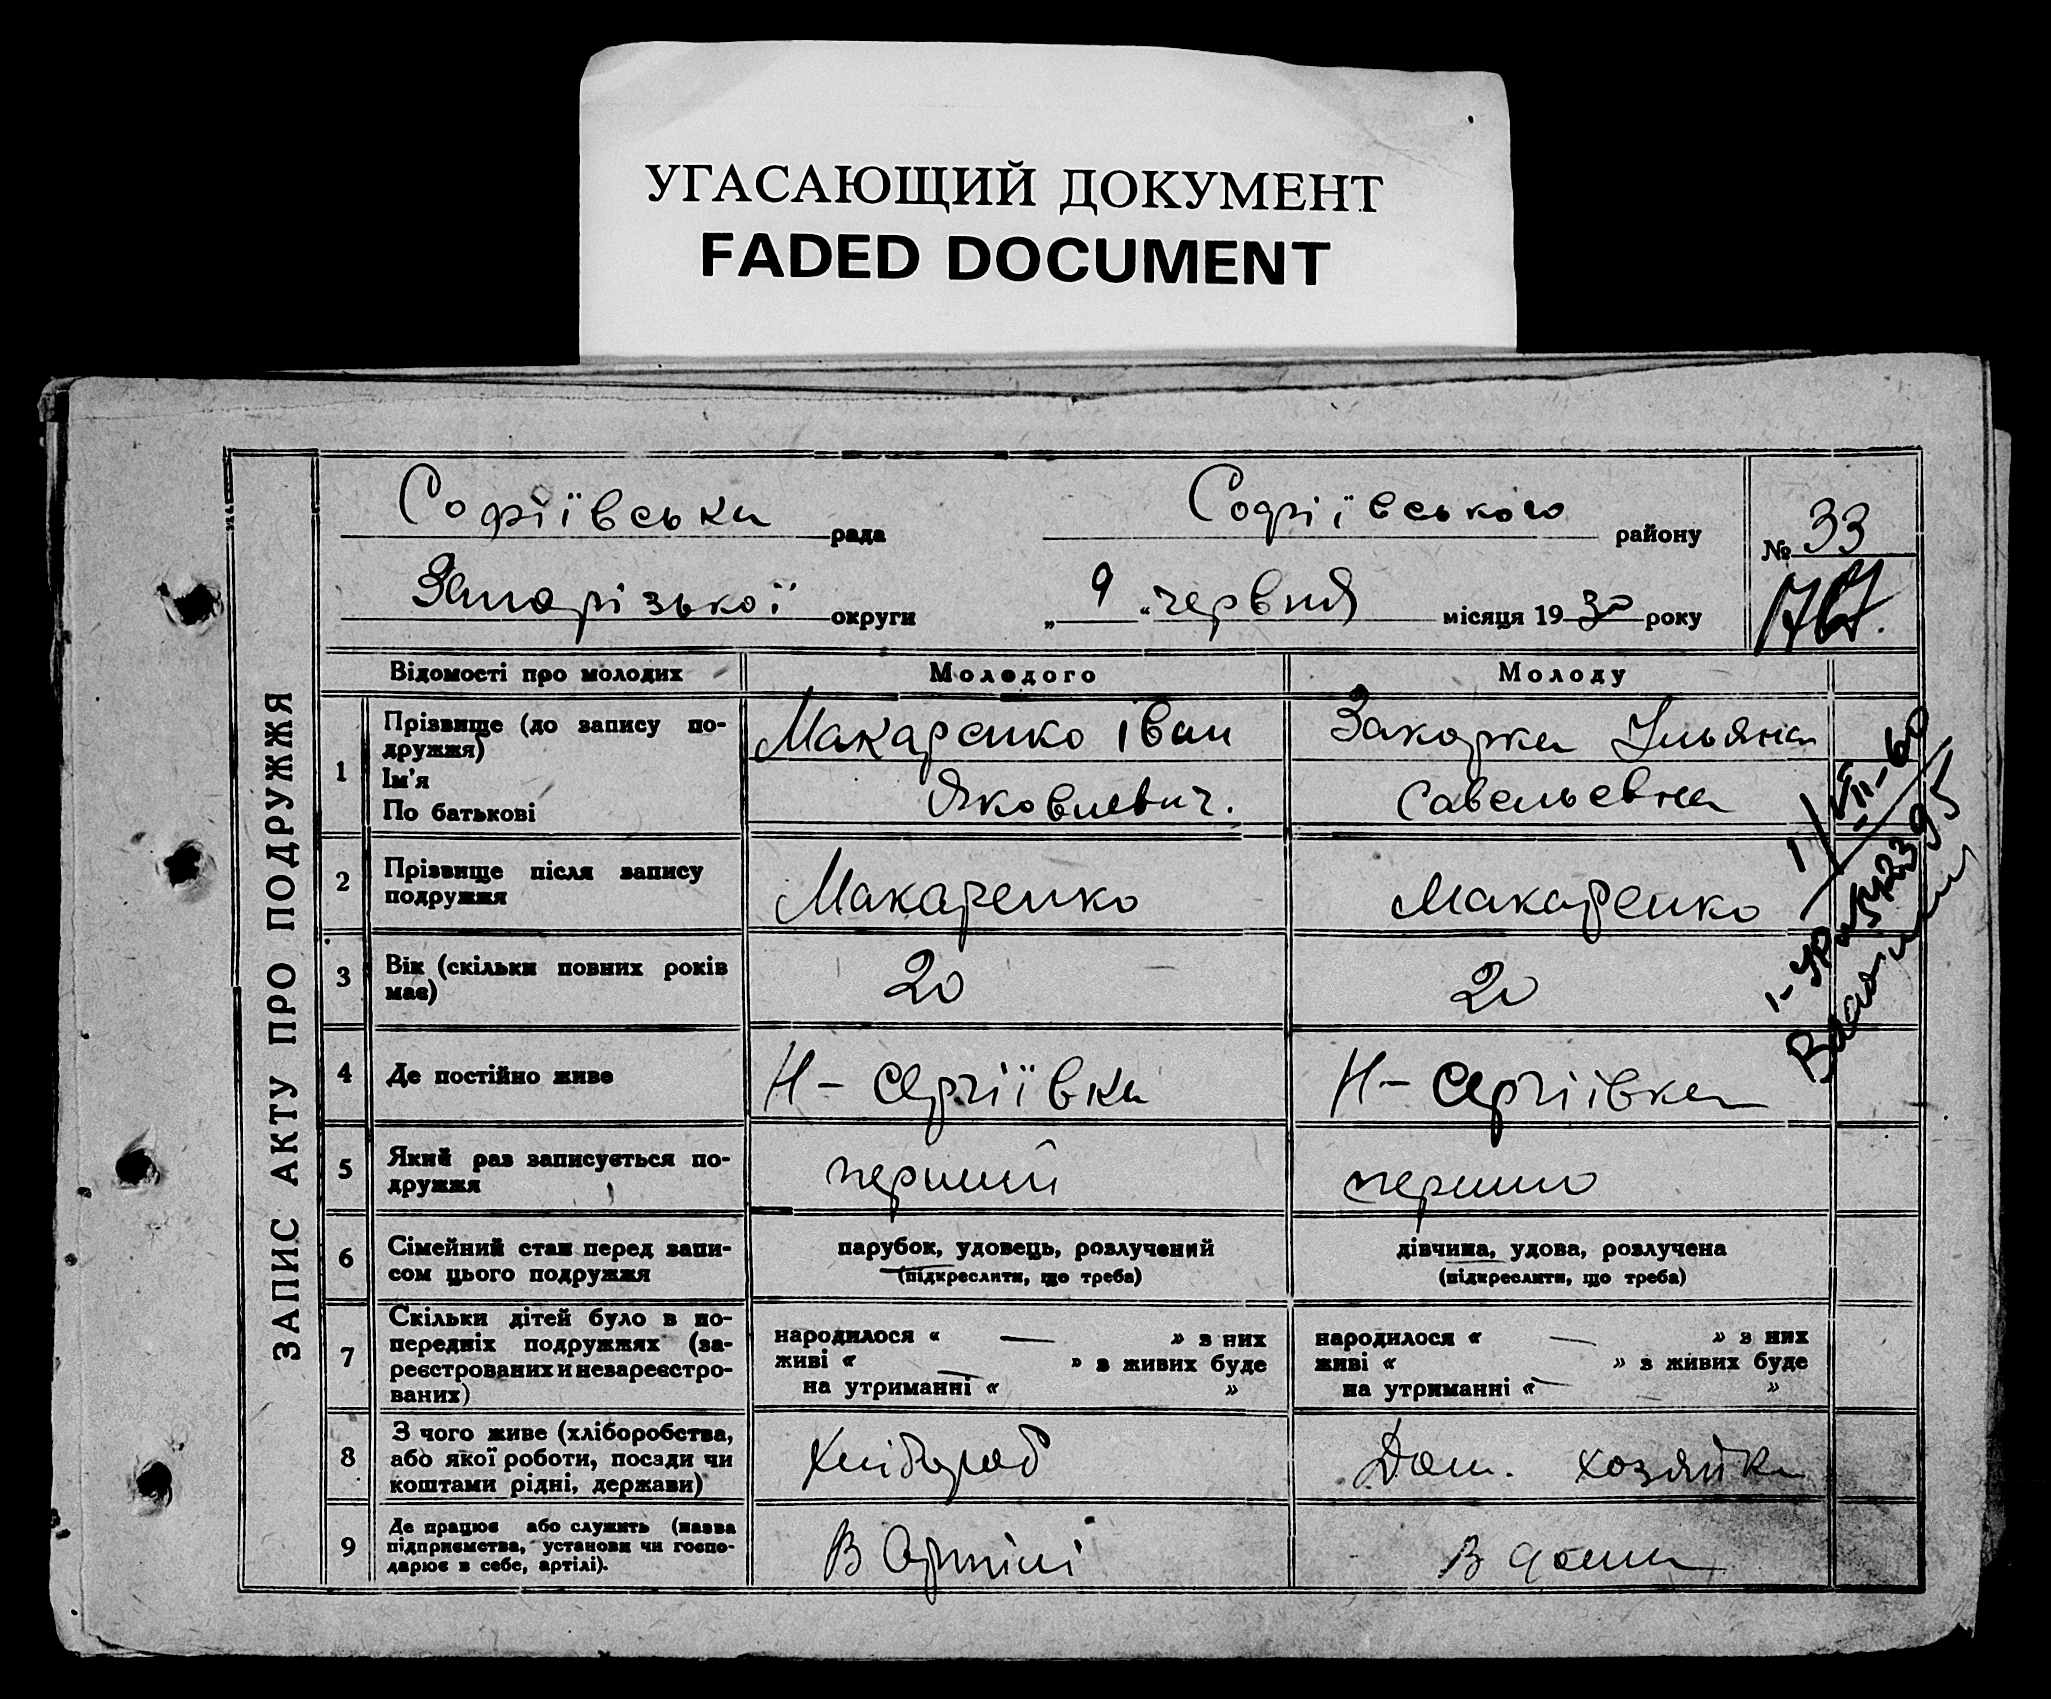 УГАСАЮЩИЙ ДОКУМЕНТ
FADED DOCUMENT
ЗАПИС АКТУ ПРО ПОДРУЖЖЯ
Софіївська рада Софіївського району № 33
Запорізької округи „ 9 “ червня місяця 19 30 року
Відомості про молодих Молодого Молоду
1 Прізвище (до запису по-
дружжя)
Ім'я
По батькові
Макаренко Іван
Яковлевич.
Ульяна
Савельевна
2 Прізвище після запису
подружжя
Макаренко Макаренко
3 Вік (скільки повних років
має)
20 20
4 Де постійно живе Н-Сергіївка Н-Сергіївка
5 Який раз записується по-
дружжя
перший
6 Сімейний стан перед запи-
сом цього подружжя
парубок, удовець, розлучений
(підкреслити, що треба)
дівчина, удова, розлучена
(підкреслити, що треба)
7 Скільки дітей було в по-
передніх подружжях (за-
реєстрованих и незареєстро-
ваних)
народилося « — » з них
живі « » з живих буде
на утриманні « — »
народилося « — » з них
живі « » з живих буде
на утриманні « — »
8 З чого живе (хліборобства,
або якої роботи, посади чи
коштами рідні, держави)
Хлібороб Дом. хозяйка
9 Де працює або служить (назва
підприємства, установи чи госпо-
дарює в себе, артілі).
В Артілі В дома